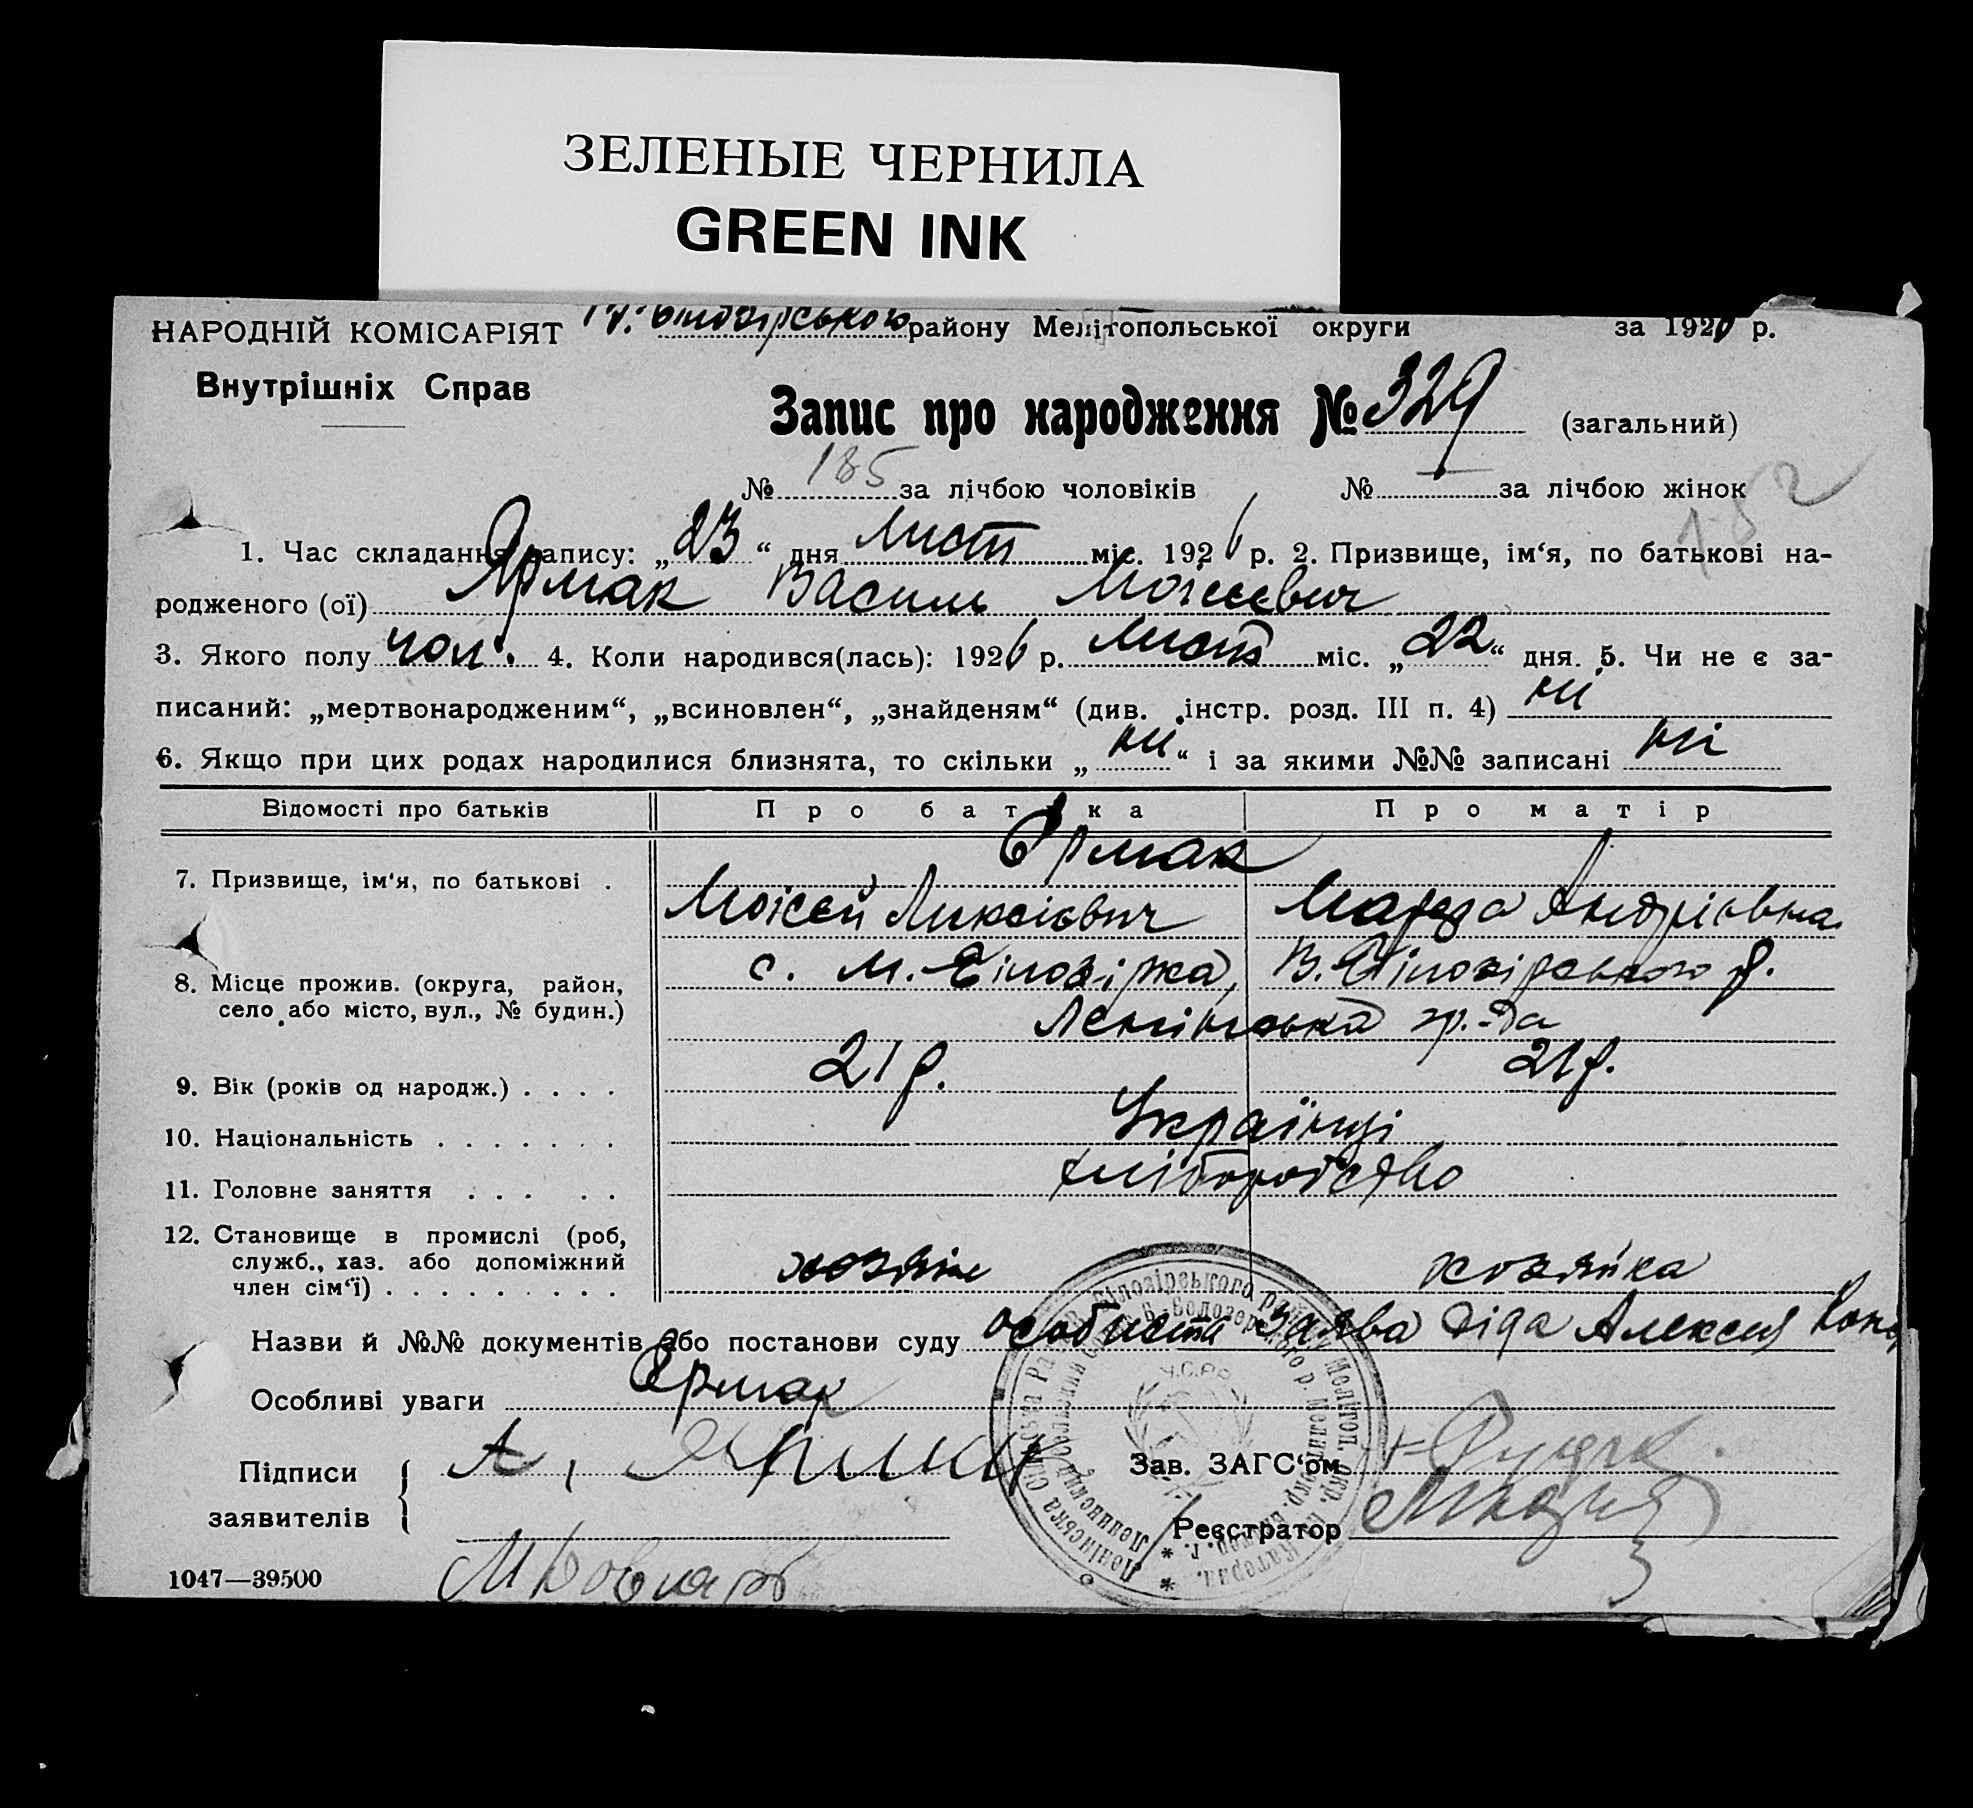 ЗЕЛЕНЫЕ ЧЕРНИЛА
GREEN INK
НАРОДНІЙ КОМІСАРІЯТ
Внутрішніх Справ
Білозірського району Мелітопольської округи за 1926 р.
Запис про народження № 329 (загальний)
№ 185 за лічбою чоловіків № — за лічбою жінок
152
1. Час складання запису: „23“ дня лист міс. 1926 р. 2. Призвище, ім‘я, по батькові на-
родженого (ої) Ярмак Василь Мойсєєвич
3. Якого полу чол. 4. Коли народився(лась): 1926 р. лист міс. „22“ дня. 5. Чи не є за-
писаний: „мертвонародженим“, „всиновлен“, „знайденям“ (див. інстр. розд. III п. 4) ні
6. Якщо при цих родах народилися близнята, то скільки „ні“ і за якими №№ записані ні
Відомості про батьків Про батька Про матір
Ярмак
7. Призвище, ім‘я, по батькові . Мойсей Ликсієвич Андріівна
8. Місце прожив. (округа, район, с. М. Білозірка, В. Білозірського р.
село або місто, вул., № будин.) Ленінська
9. Вік (років од народж.) . . . . 21 р. 21 р.
10. Національність . . . . . . . Українці
11. Головне заняття . . . . . хліборобство
12. Становище в промислі (роб,
служб., хаз. або допоміжний
член сім‘ї) . . . . . . . . . хозяін хозяйка
Назви й №№ документів або постанови суду особиста заява діда Алексія
Особливі уваги Ярмак
Підписи
заявителів
А. Ярмак
Зав. ЗАГС‘ом
Реєстратор
1047—39500
Ленінська Сільська Рада В.-Білозірського району Мелітоп. окр.
У.С.Р.Р.